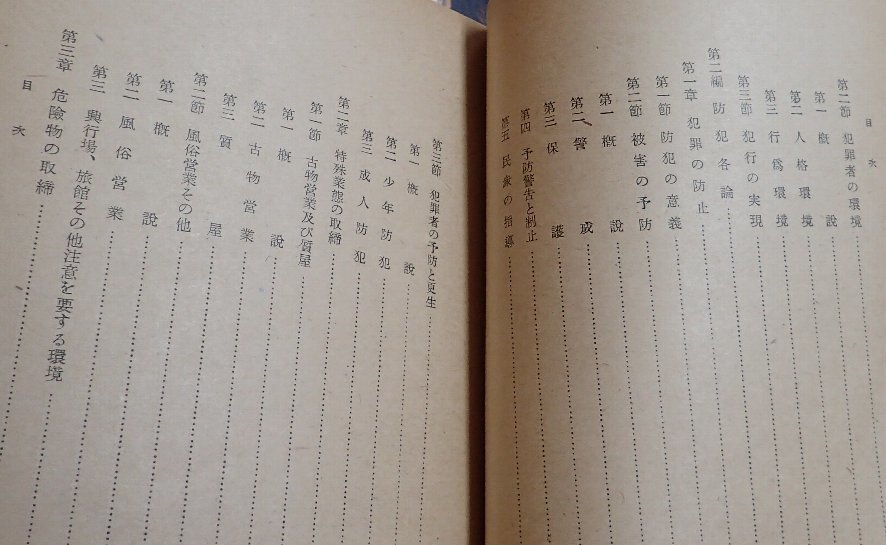 目次
第二節 犯罪者の環境
第一 概説
第二 人格環境
第三 行為環境
第三節 犯行の実現
第二編 防犯各論
第一章 犯罪の防止
第一節 防犯の意義
第二節 被害の予防
第一 概説
第二 警戒
第三 保護
第四 予防警告と制止
第五 民衆の指導
第三節 犯罪者の予防と更生
第一 概説
第二 少年防犯
第三 成人防犯
第二章 特殊業態の取締
第一節 古物営業及び質屋
第一 概説
第二 古物営業
第三 質屋
第二節 風俗営業その他
第一 概説
第二 風俗営業
第三 興行場、旅館その他注意を要する環境
第三章 危險物の取締
目次